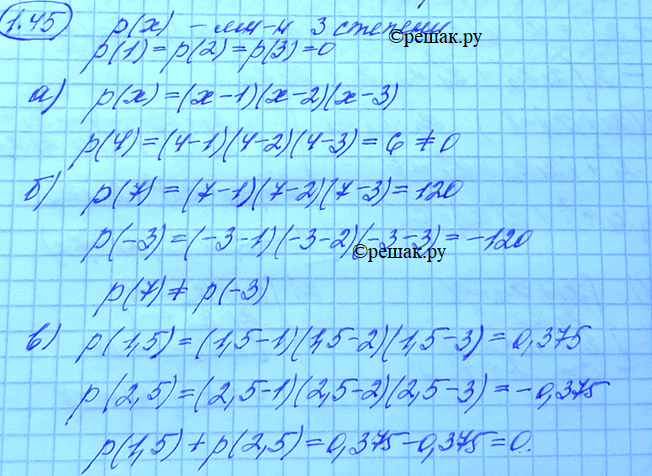 1.45 p(x) - мн-н 3 степени
©решак.ру
p(1)=p(2)=p(3)=0
а) p(x)=(x-1)(x-2)(x-3)
p(4)=(4-1)(4-2)(4-3)=6≠0
б) p(7)=(7-1)(7-2)(7-3)=120
p(-3)=(-3-1)(-3-2)(-3-3)=-120
©решак.ру
p(7)≠p(-3)
в) p(1,5)=(1,5-1)(1,5-2)(1,5-3)=0,375
p(2,5)=(2,5-1)(2,5-2)(2,5-3)=-0,375
p(1,5)+p(2,5)=0,375-0,375=0.